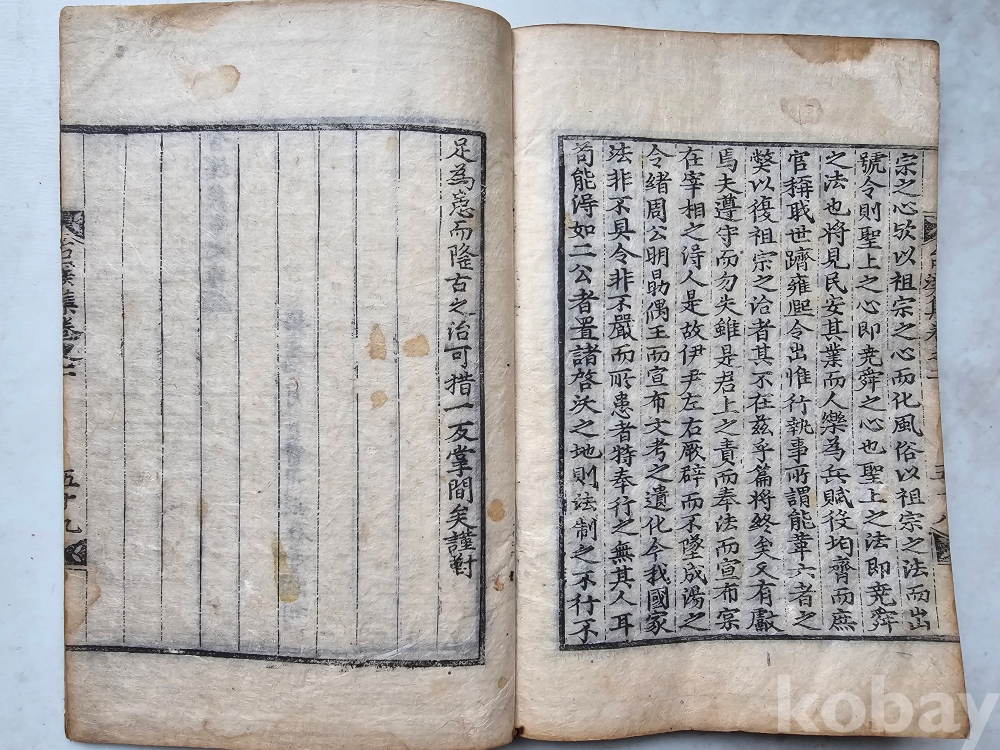 宗之心欤以祖宗之心而化風俗以祖宗之法而出
號令則聖上之心即堯舜之心也聖上之法即堯舜
之法也將見民安其業而人樂為兵賦役均齊而庶
官稱職世躋雍熙令出惟行執事所謂能革六者之
獘以復祖宗之治者其不在玆乎篇將終矣又有獻
焉夫遵守而勿失雖是君上之責而奉法而宣布寔
在宰相之得人是故伊尹左右厥辟而不墜成湯之
令緒周公明勖偶王而宣布文考之遺化今我國家
法非不具令非不嚴而所患者特奉行之無其人耳
苟能得如二公者置諸啓沃之地則法制之不行不
足為患而隆古之治可措一反掌間矣謹對
集卷之二
五十九
kobay